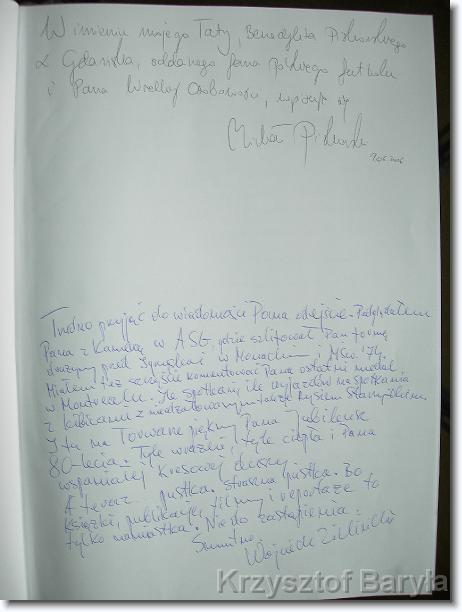 W imieniu mojego Taty, Benedykta Piskorskiego
z Gdańska, oddanego fana polskiego futbolu
i Pana Wielkiej Osobowości, wpisuję się
Michał
2006
Trudno przyjąć do wiadomości Pana odejście. Podglądałem
Pana z kamerą w ASG, gdzie szlifował Pan formę
drużyny przed Igrzyskami w Monachium, MŚw. 74.
Miałem też szczęście komentować Pana ostatni medal
w Montrealu. Ile spotkań, ile wyjazdów na spotkania
z kibicami z nieodżałowanym także Rysiem
I tu na Torwarze piękny Pana Jubileusz
80-lecia. Tyle wrażeń, tyle ciepła i Pana
wspaniałej Kresowej duszy
A teraz pustka. straszna pustka. Bo
książki, publikacje, filmy i reportaże to
tylko namiastka. Nie do zastąpienia.
Smutno.
Wojciech Zieliński
Krzysztof Baryła